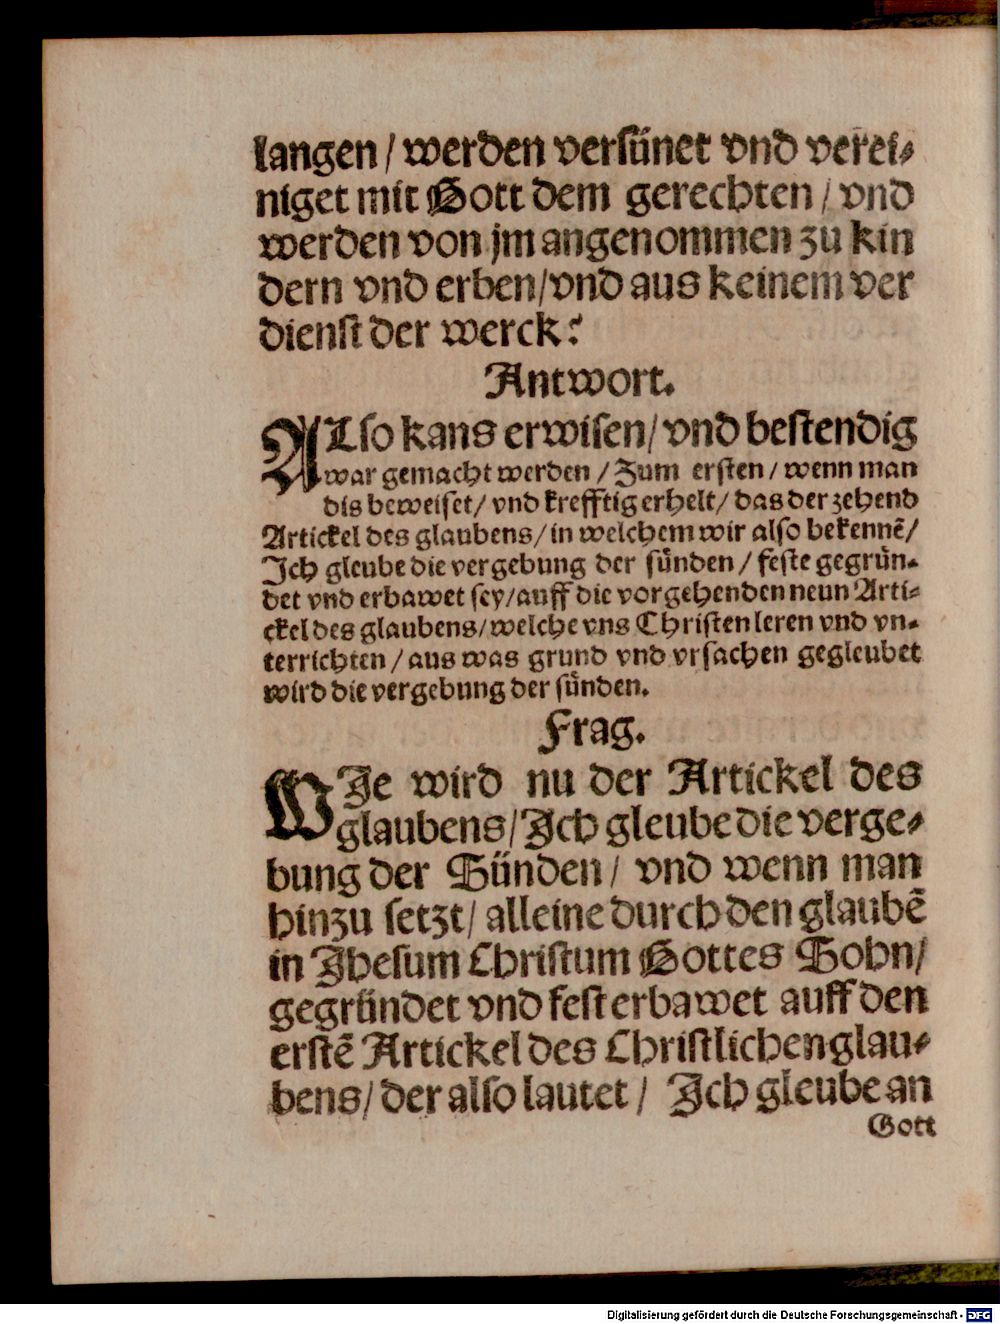 langen / werden verſünet vnd verei⸗
niget mit Gott dem gerechten / vnd
werden von jm angenommen zu kin
dern vnd erben/vnd aus keinem ver
dienſt der werck?
Antwort.
ALſo kans erwiſen/ vnd beſtendig
war gemacht werden / Zum erſten / wenn man
dis beweiſet/ vnd krefftig erhelt/ das der zehend
Artickel des glaubens/ in welchem wir alſo bekennẽ/
Ich gleube die vergebung der ſünden / feſte gegrün⸗
det vnd erbawet ſey/auff die vorgehenden neun Arti⸗
ckel des glaubens/welche vns Chriſten leren vnd vn⸗
terrichten / aus was grund vnd vrſachen gegleubet
wird die vergebung der ſünden.
Frag.
WIe wird nu der Artickel des
glaubens/Ich gleube die verge⸗
bung der Sünden/ vnd wenn man
hinzu ſetzt/ alleine durch den glaubẽ
in Iheſum Chriſtum Gottes Sohn/
gegründet vnd feſt erbawet auff den
erſtẽ Artickel des Chriſtlichen glau⸗
bens/ der alſo lautet / Ich gleube an
Gott
Digitalisierung gefördert durch die Deutsche Forschungsgemeinschaft - DFG